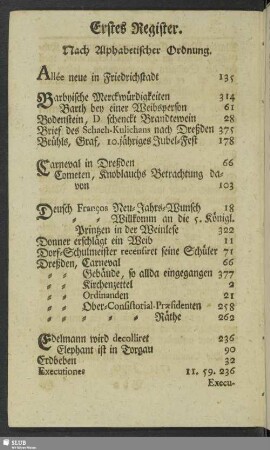 Erstes Register.
Nach Alphabetischer Ordnung.
Allée neue in Friedrichstadt 135
Barbyische Merckwürdigkeiten 314
Barth bey einer Weibsperson 61
Bodenstein, D. schenckt Brandtewein 28
Brief des Schach-Kulichans nach Dreßden 375
Brühls, Graf, 10.jähriges Jubel-Fest 178
Carneval in Dreßden 66
Cometen, Knoblauchs Betrachtung da-
von 103
Deusch François Neu-Jahrs-Wunsch 18
〃 〃 Willkomm an die 5. Königl.
Printzen in der Weinlese 322
Donner erschlägt ein Weib 11
Dorf-Schulmeister recensirt seine Schüler 71
Dreßden, Carneval 66
〃 〃 Gebäude, so allda eingegangen 377
〃 〃 Kirchenzettel 2
〃 〃 Ordinanden 21
〃 〃 Ober-Consistorial-Præsidenten 258
〃 〃 〃 〃 〃 Räthe 262
Edelmann wird decolliret 236
Elephant ist in Torgau 90
Erdbeben 32
Executiones 11. 59. 236
Execu-
SLUB
Wir führen Wissen.